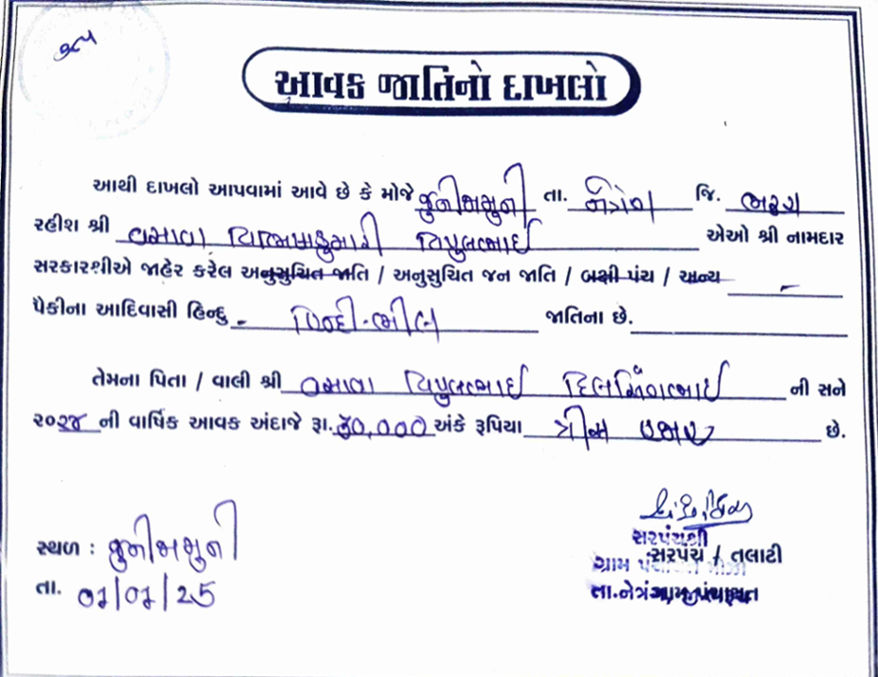 આવક જાતિનો દાખલો
આથી દાખલો આપવામાં આવે છે કે મોજે જુનીજામુની તા. નેત્રંગ જિ. ભરૂચ
રહીશ શ્રી વસાવા વિપુલભાઈ એઓ શ્રી નામદાર
સરકારશ્રીએ જાહેર કરેલ અનુસુચિત જાતિ / અનુસુચિત જન જાતિ / બક્ષી પંચ / અન્ય -
પૈકીના આદિવાસી હિન્દુ હિન્દી-ભીલ જાતિના છે.
તેમના પિતા / વાલી શ્રી વસાવા વિપુલભાઈ દિલસિંગભાઈ ની સને
૨૦૨૪ ની વાર્ષિક આવક અંદાજે રૂા. ૩૦,૦૦૦ અંકે રૂપિયા ત્રીસ હજાર છે.
સ્થળ : જુનીજામુની
તા. ૦૧/૦૧/25
સરપંચશ્રી
સરપંચ / તલાટી
ગ્રામ
તા.નેત્રંગ ગ્રામ પંચાયત